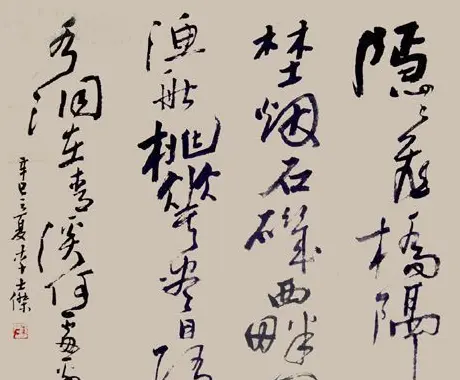 隱〻飛橋隔
埜烟石磯西畔
漁船桃花盡日隨
水洞在青溪何處
辛巳之夏李士傑